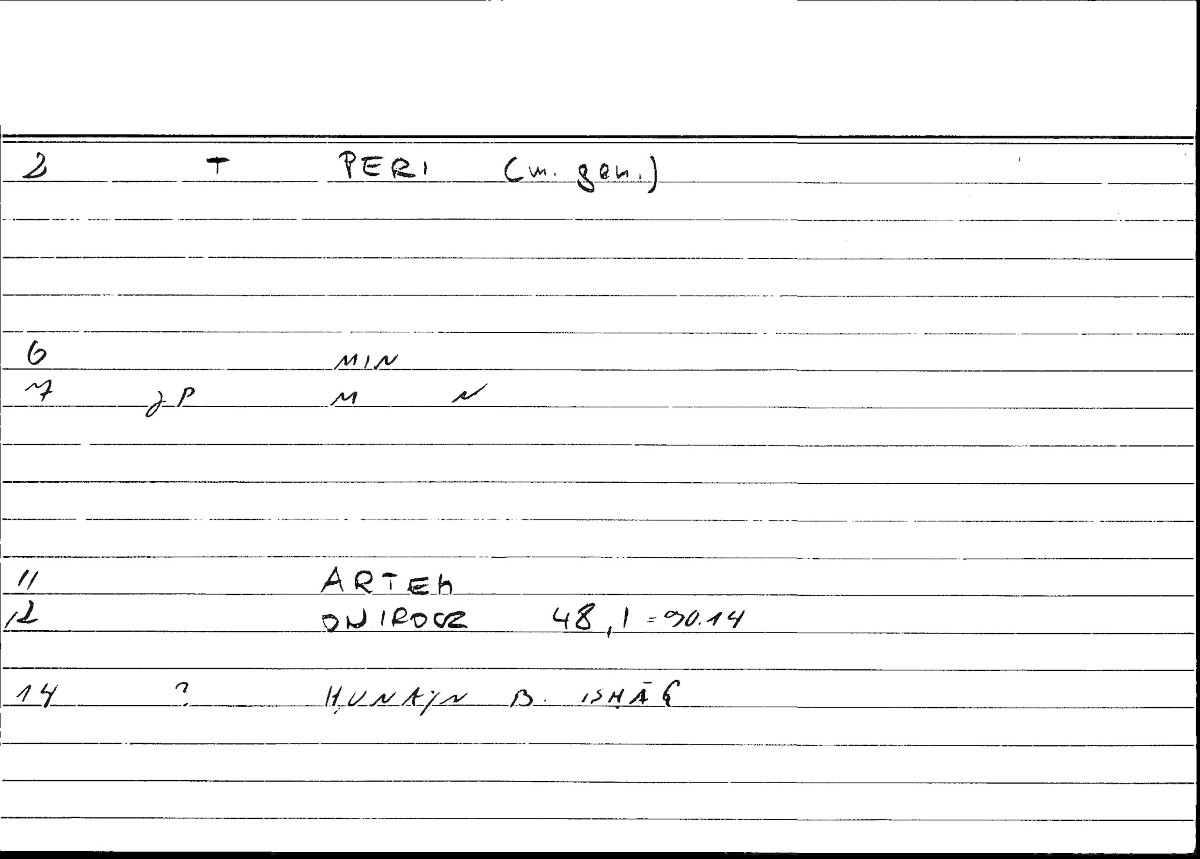 2 T PERI (m. gen.)
6 MIN
7 gP M N
11 ARTEM
12 ONIROCR 48,1 = 90.14
14 ? ḤUNAYN B. ISḤĀQ